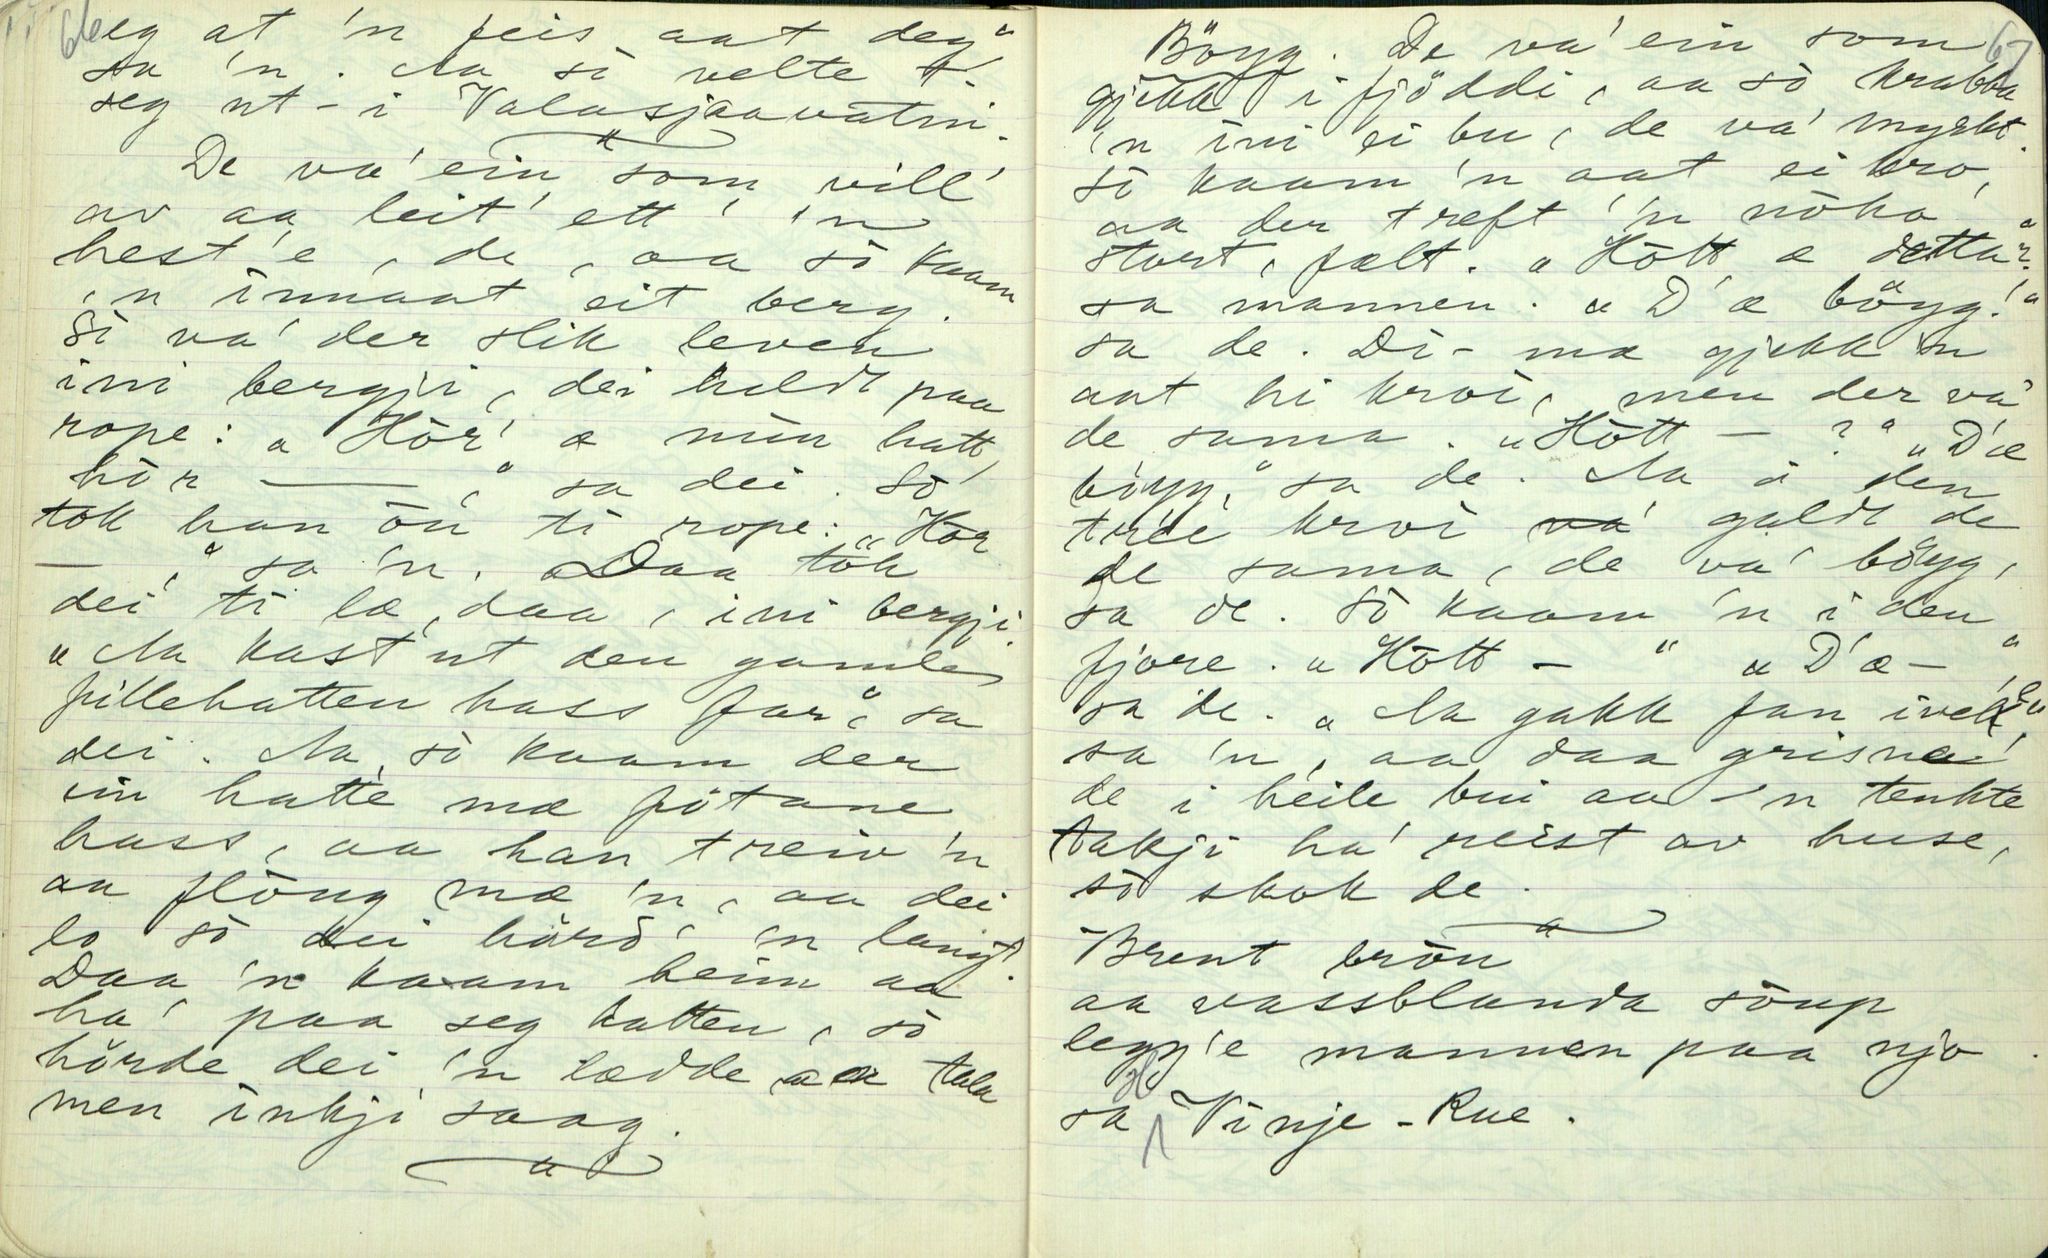 66
eg at 'n feis aat deg"
sa 'n. Aa so velte
seg ut - i Valasjaavatni.
De va' ein som vill'
av aa leit' ett' 'n
hest'e, de, aa so kaam
'n innaat eit berg.
So va' der slik leven
ini bergji, dei heldt paa
rope: "Hor' æ min hatt,
hor ——" sa dei. So
tok han on ti rope: "Hor
—," sa 'n. Daa tok
dei ti læ, daa, ini bergji.
"Aa kast ut den gamle
fillehatten hass far", sa
dei. Aa so kaam der
ein hatte mæ fotane
hass, aa han treiv 'n
aa flöug mæ 'n, aa dei
lo so dei hörd' 'n langt.
Daa 'n kaam heim aa
ha' paa seg hatten, so
hörde dei 'n lædde aa tala
men inkji saag.
67
Böyg. De va' ein som
gjekk i fjöddi, aa so krabba
'n ini ei bu, de va' myrkt.
so kaam 'n aat ei kro,
aa der treft 'n noko
stort, fælt. "Hott æ detta?"
sa mannen. "D'æ böyg!"
sa de. Di- mæ gjekk 'n
aat hi kroi, men der va'
de sama. "Hott — ?" "D'æ
böyg," sa de. Aa i den
trée kroi va' galdt de
de sama, de va' böyg,
sa de. So kaam 'n i den
fjore. "Hott —" "D'æ —"
sa de. "Aa gakk fan ivek!"
sa 'n, aa daa grisna'
de i heile bui aa 'n tenkte
takji ha' reist av huse,
so skok de.
Brent bröu
aa vassblanda söup
legg'e mannen paa njo
sa Vinje-Rue.